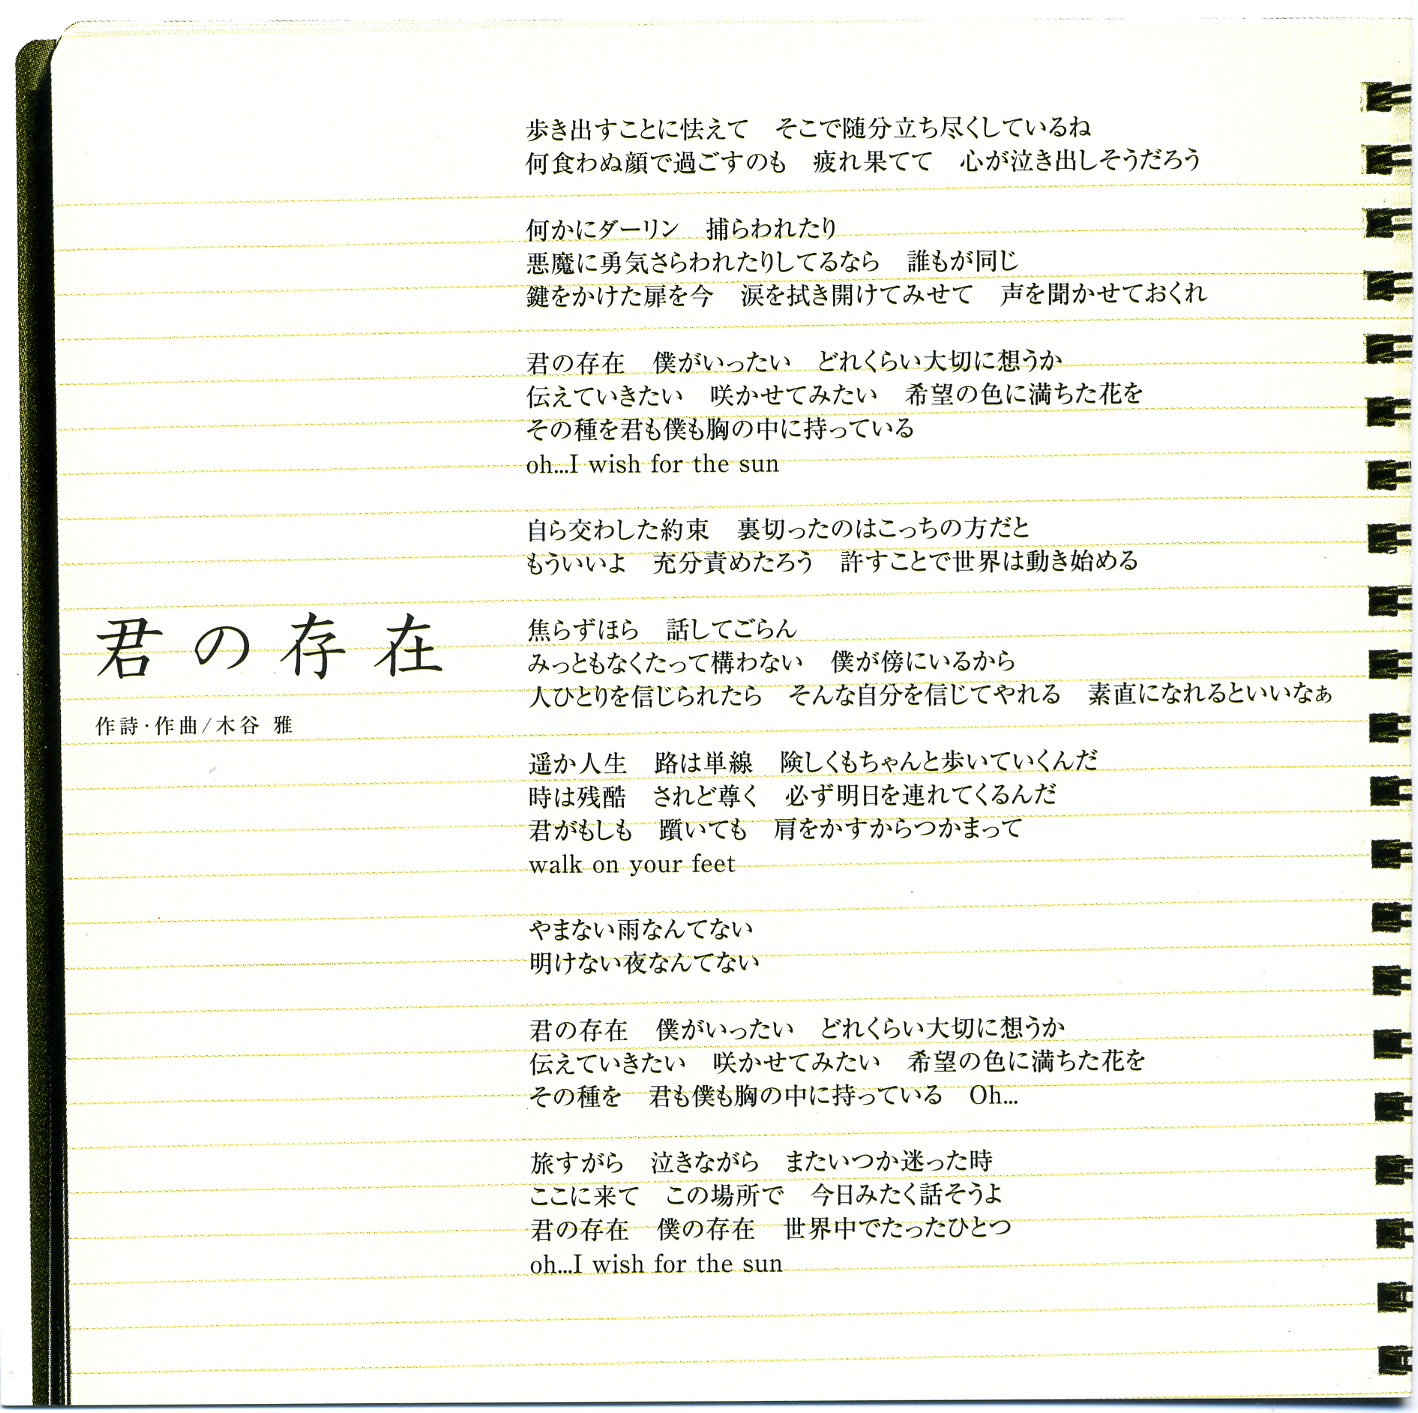 君の存在
作詩・作曲/木谷 雅
歩き出すことに怯えて　そこで随分立ち尽くしているね
何食わぬ顔で過ごすのも　疲れ果てて　心が泣き出しそうだろう
何かにダーリン　捕らわれたり
悪魔に勇気さらわれたりしてるなら　誰もが同じ
鍵をかけた扉を今　涙を拭き開けてみせて　声を聞かせておくれ
君の存在　僕がいったい　どれくらい大切に想うか
伝えていきたい　咲かせてみたい　希望の色に満ちた花を
その種を君も僕も胸の中に持っている
oh...I wish for the sun
自ら交わした約束　裏切ったのはこっちの方だと
もういいよ　充分責めたろう　許すことで世界は動き始める
焦らずほら　話してごらん
みっともなくたって構わない　僕が傍にいるから
人ひとりを信じられたら　そんな自分を信じてやれる　素直になれるといいなぁ
遥か人生　路は単線　険しくもちゃんと歩いていくんだ
時は残酷　されど尊く　必ず明日を連れてくるんだ
君がもしも　躓いても　肩をかすからつかまって
walk on your feet
やまない雨なんてない
明けない夜なんてない
君の存在　僕がいったい　どれくらい大切に想うか
伝えていきたい　咲かせてみたい　希望の色に満ちた花を
その種を　君も僕も胸の中に持っている　Oh...
旅すがら　泣きながら　またいつか迷った時
ここに来て　この場所で　今日みたく話そうよ
君の存在　僕の存在　世界中でたったひとつ
oh...I wish for the sun